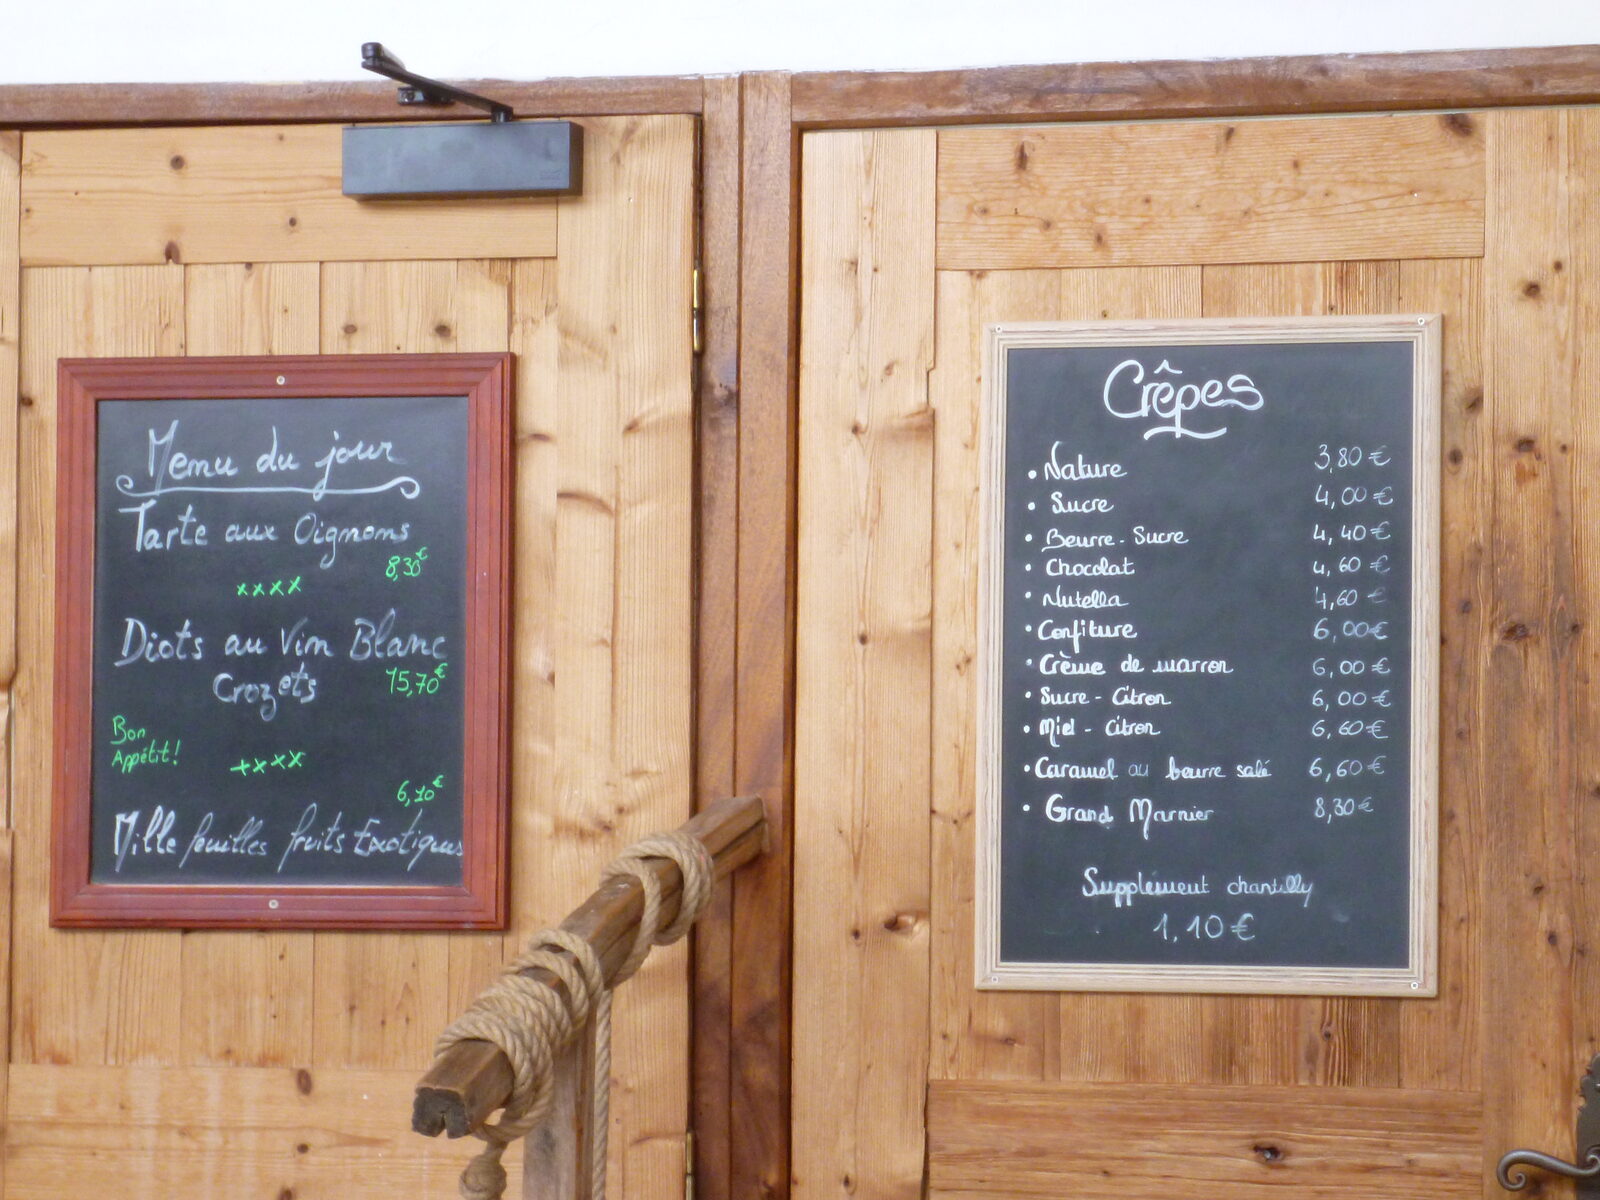 Menu du jour
Tarte aux Oignons
8,30€
xxxx
Diots au Vin Blanc
Crozets 15,70€
Bon
Appétit!
xxxx
6,10€
Mille feuilles fruits Exotiques
Crêpes
• Nature 3,80€
• Sucre 4,00€
• Beurre-Sucre 4,40€
• Chocolat 4,60€
• Nutella 4,60€
• Confiture 6,00€
• Crème de marron 6,00€
• Sucre-Citron 6,00€
• Miel-Citron 6,60€
• Caramel au beurre salé 6,60€
• Grand Marnier 8,30€
Supplément chantilly
1,10€